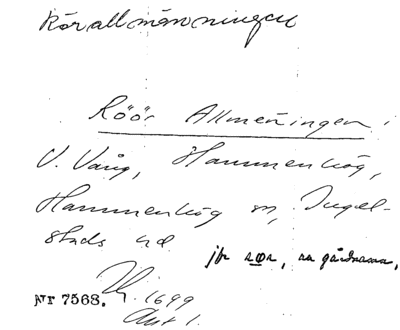 Rörallmänningen
Röör Allmeningen
V. Vång, Hammenhög,
Hammenhög sn, Ingel-
stads hd
jfr rør, sa gårdnamn.
Nr 7568. 1699
Akt 1.